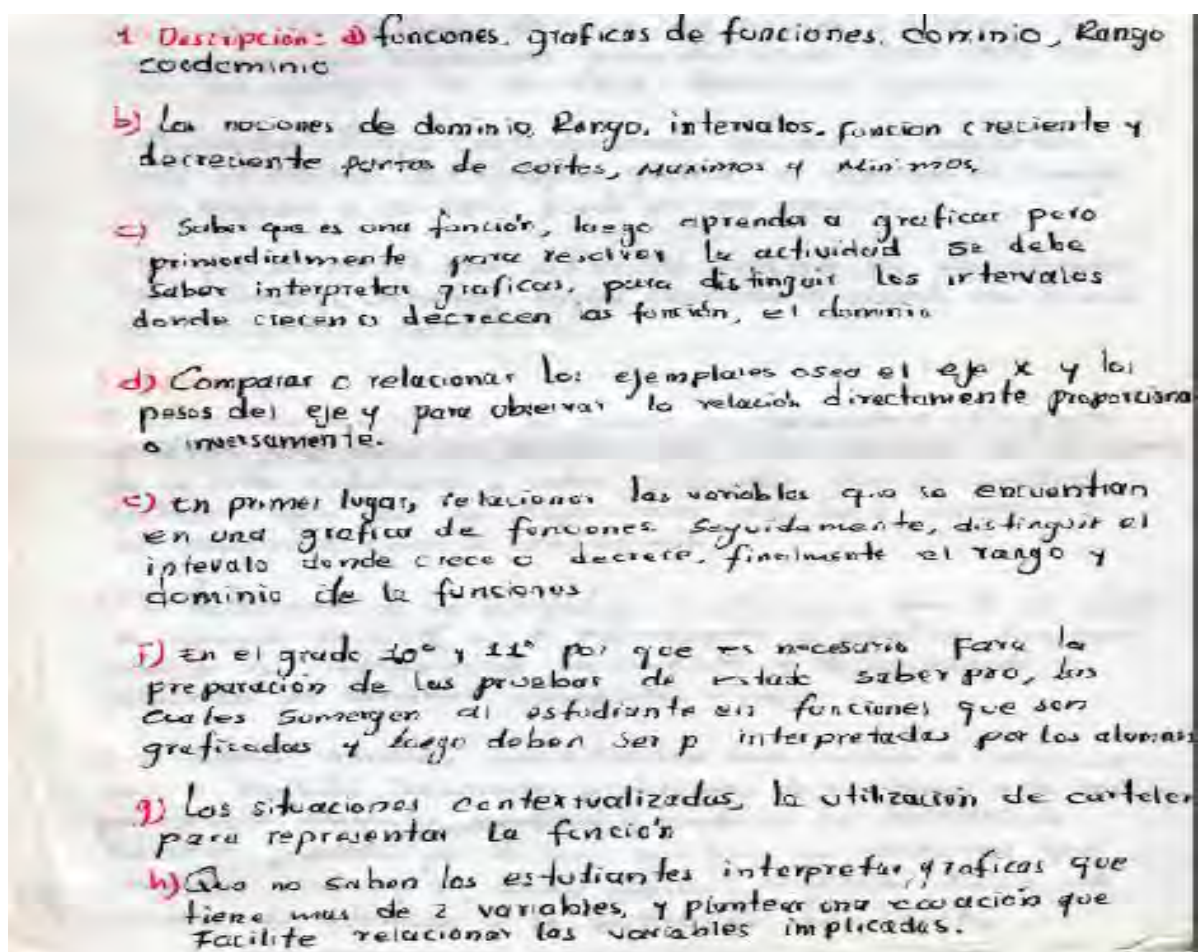 1 Descripción: a) funciones. graficas de funciones. dominio, Rango
coodominio
b) Las nociones de dominio, Rango, intervalos, funcion creciente y
decreciente puntos de cortes, Maximos y Minimos.
c) Saber que es una función, luego aprenda a graficar pero
primordialmente para resolver la actividad se debe
saber interpretar graficas, para distinguir los intervalos
donde crecen o decrecen las función, el dominio
d) Comparar o relacionar los ejemplares osea el eje x y los
pesos del eje y para observar la relación directamente proporciona
o inversamente.
e) En primer lugar, relacionar las variables que se encuentran
en una grafica de funciones. Seguidamente, distinguir el
intevalo donde crece o decrece, finalmente el rango y
dominio de la funciones
f) En el grado 10° y 11° por que es necesario para la
preparación de las pruebas de estado saber pro, las
cuales sumergen al estudiante en funciones que son
graficadas y luego deben ser p interpretadas por los alumnos
g) Las situaciones contextualizadas, la utilización de carteler
para representar La función
h) Que no saben los estudiantes interpretar graficas que
tiene mas de 2 variables, y plantear una ecuación que
Facilite relacionar las variables implicadas.